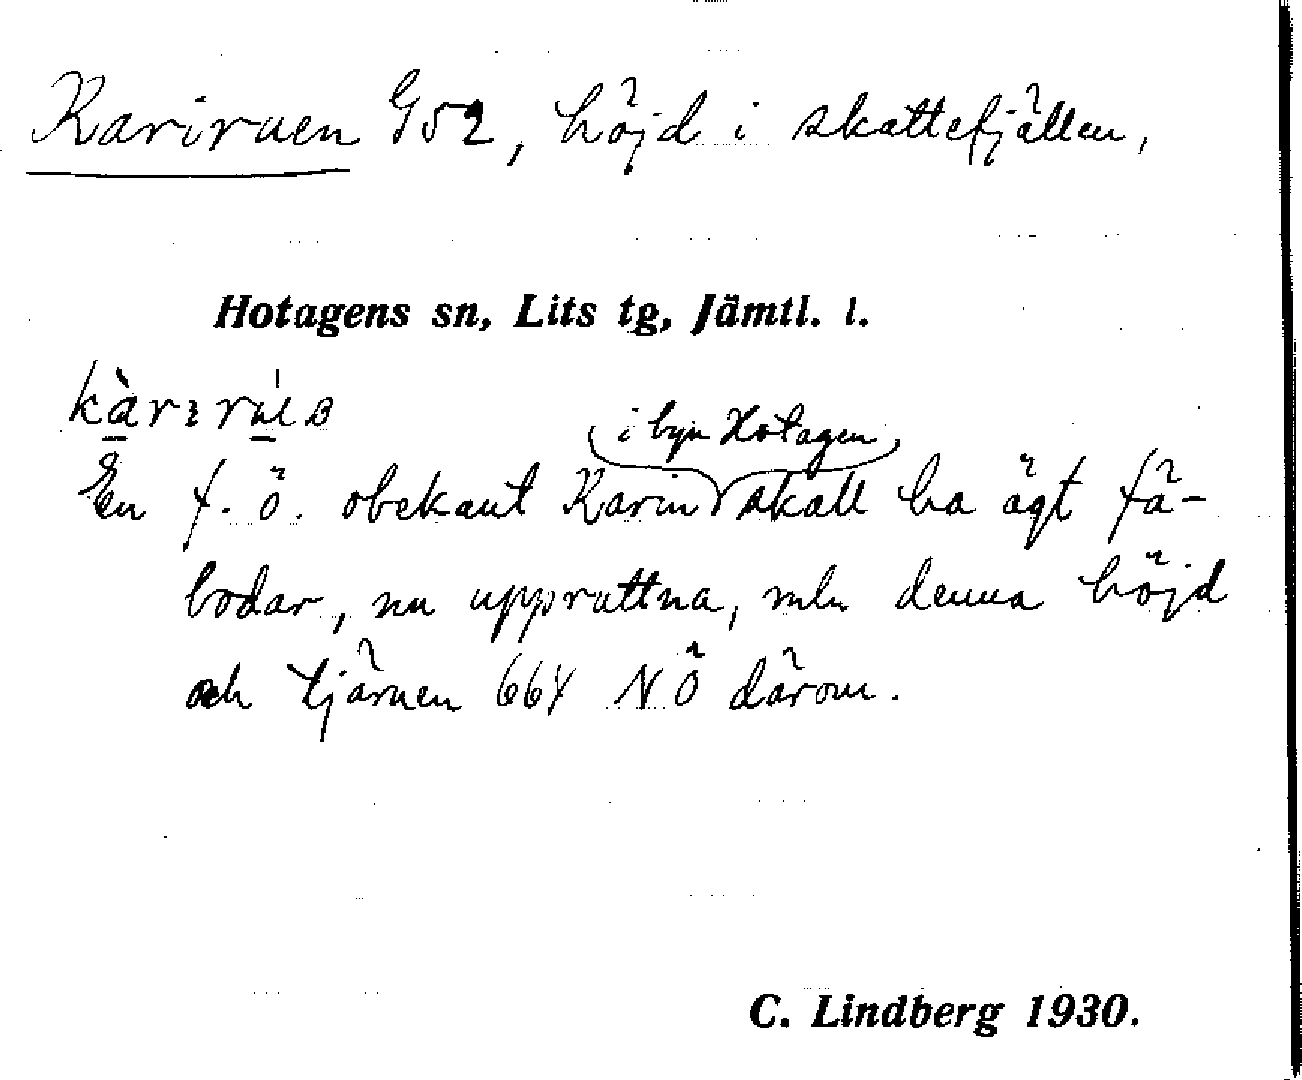 Kariruen 952, höjd i skattefjällen,
Hotagens sn, Lits tg, Jämtl. l.
i byn Hotagen
En f. ö. obekant Karin skall ha ägt fä-
bodar, nu uppruttna, mln denna höjd
och tjärnen 664 NÖ därom.
C. Lindberg 1930.